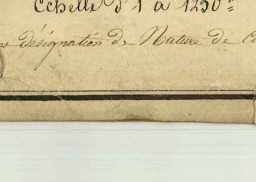 Echelle d'1 à 1250e
désignation de Nature de